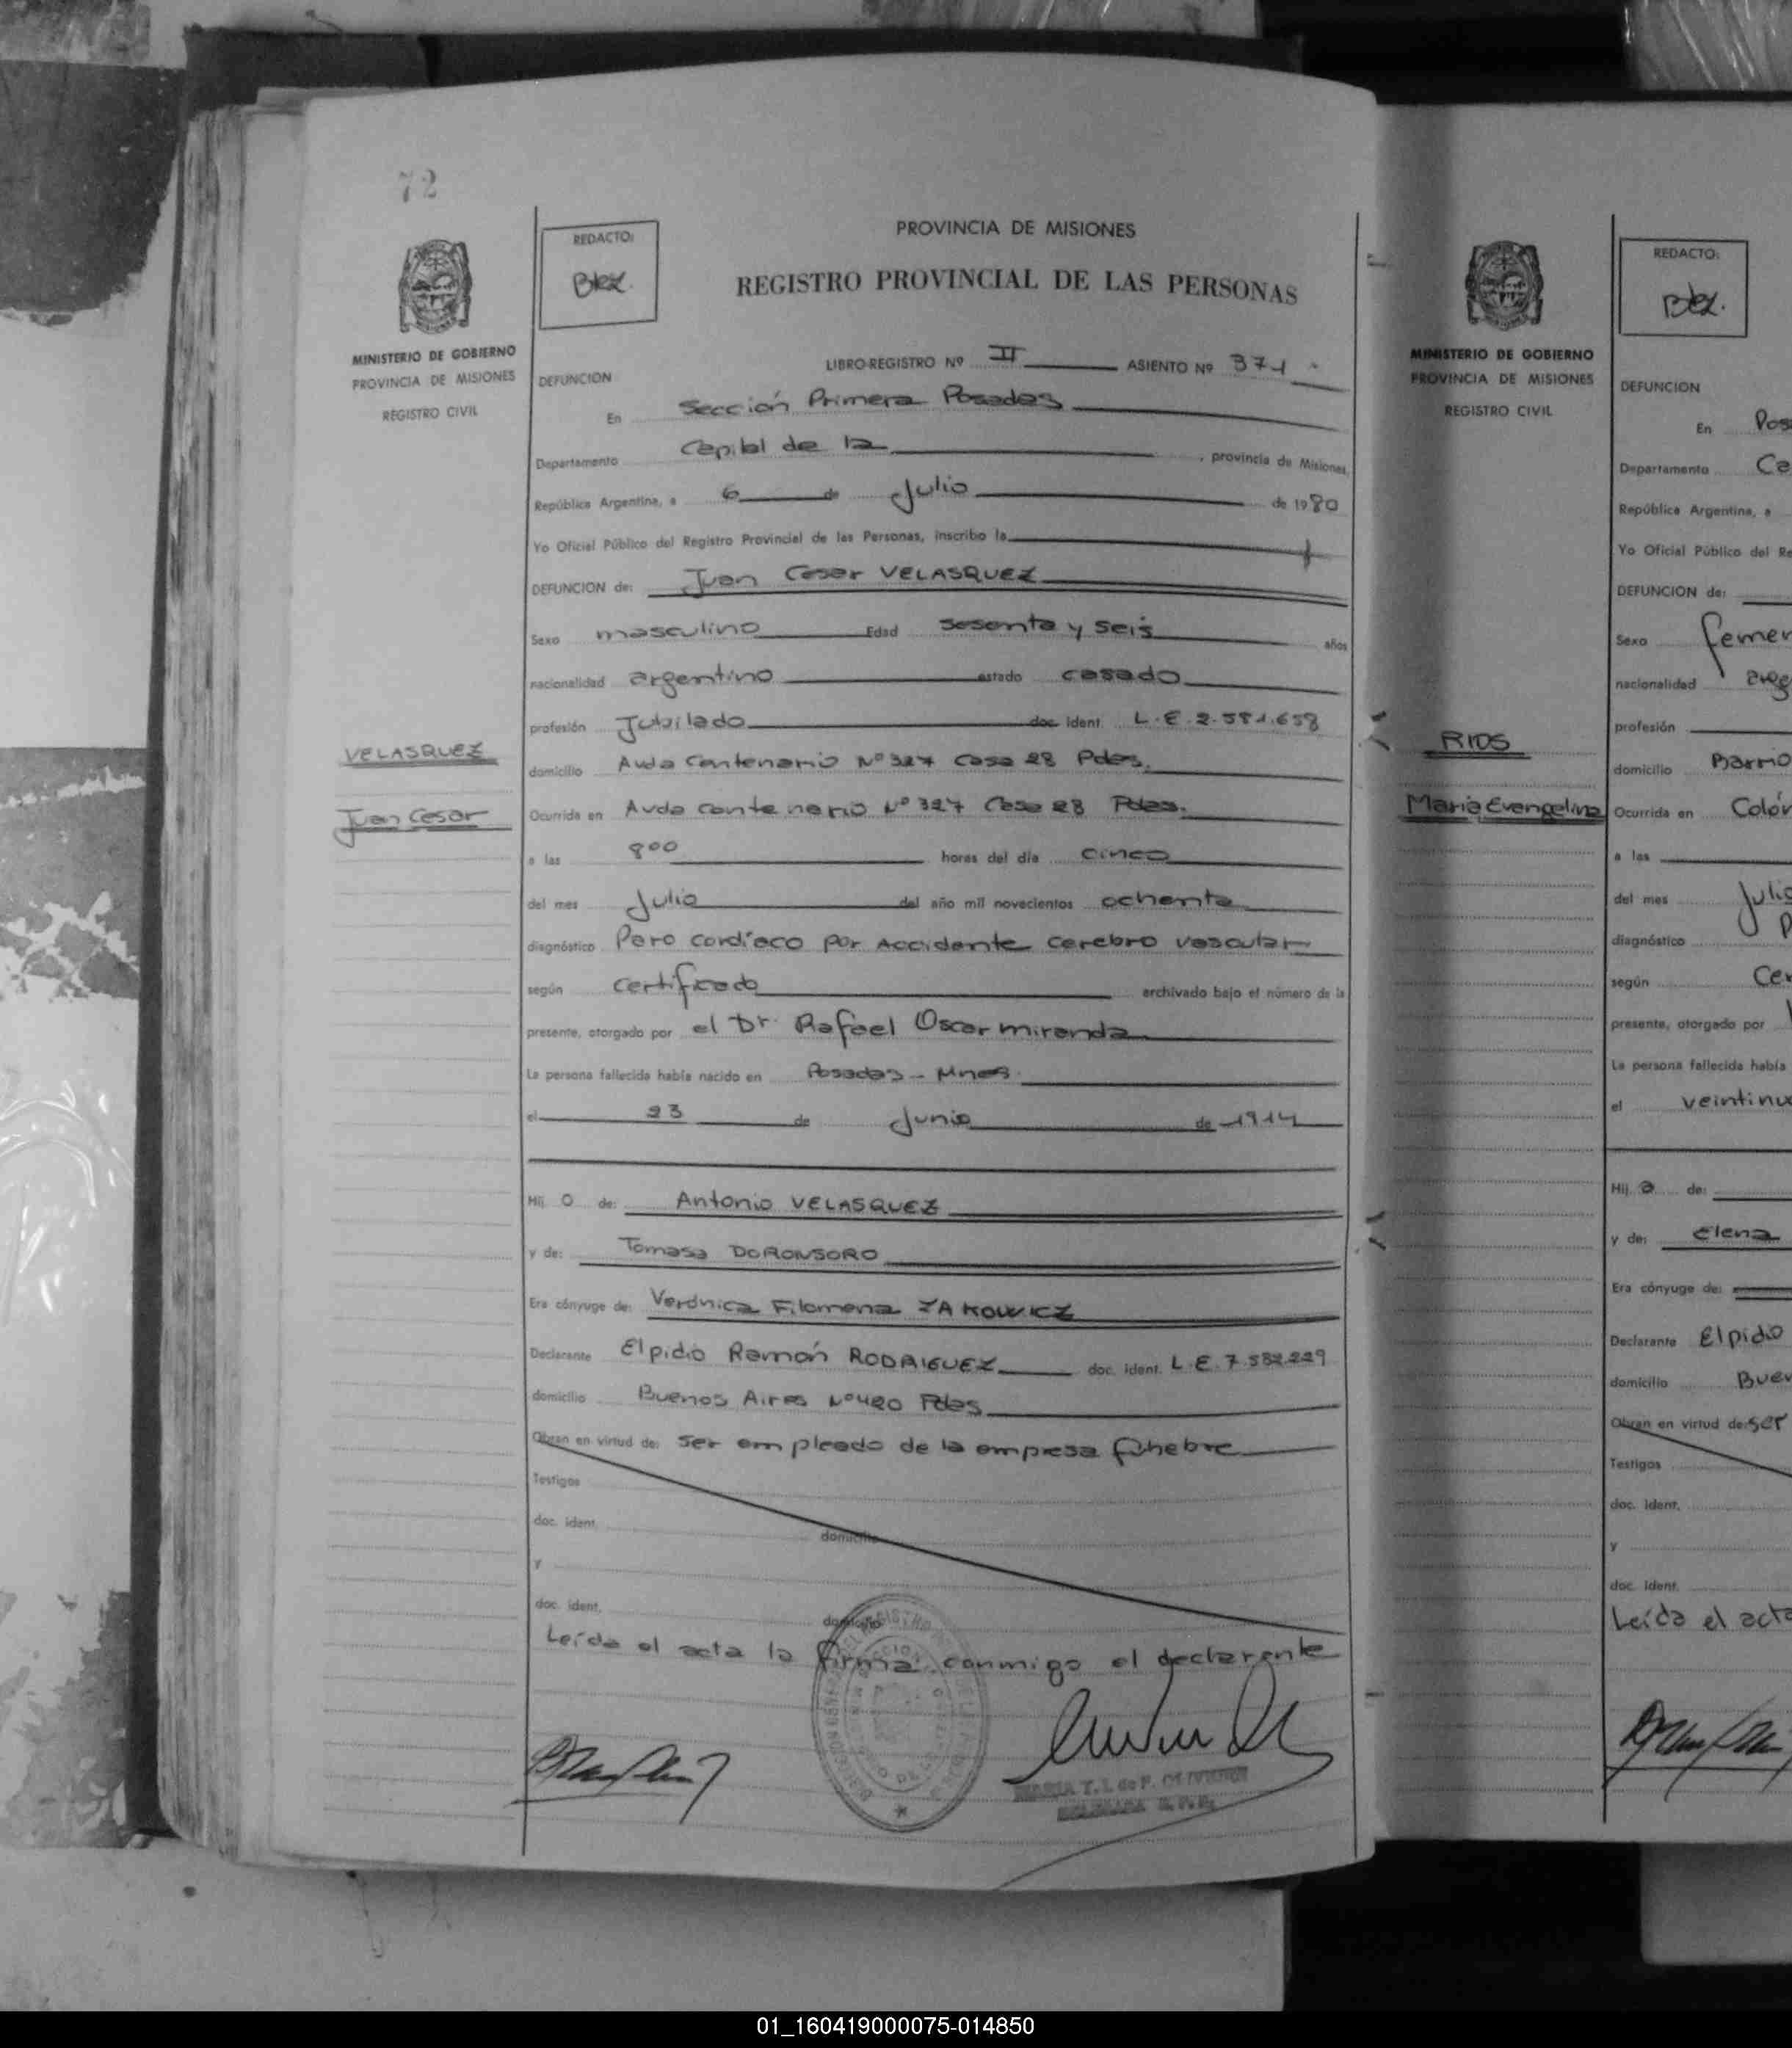 72
PROVINCIA DE MISIONES
REGISTRO PROVINCIAL DE LAS PERSONAS
REDACTO:
MINISTERIO DE GOBIERNO
PROVINCIA DE MISIONES
REGISTRO CIVIL
LIBRO-REGISTRO Nº II ASIENTO Nº 371
DEFUNCION
En Sección Primera Posadas
Departamento Capital de la , provincia de Misiones,
República Argentina, a 6 de Julio de 1980
Yo Oficial Público del Registro Provincial de las Personas, inscribo la
DEFUNCION de: Juan Cesar VELASQUEZ
Sexo masculino Edad sesenta y seis años
nacionalidad argentino estado casado
profesión Jubilado doc. ident. L.E. 2.581.658
VELASQUEZ
Juan Cesar
domicilio Avda Centenario Nº 327 Casa 28 Pdas.
Ocurrida en Avda Centenario Nº 327 Casa 28 Pdas.
a las 800 horas del día cinco
del mes Julio del año mil novecientos ochenta
diagnóstico Paro cardíaco por Accidente cerebro vascular
según certificado archivado bajo el número de la
presente, otorgado por el Dr. Rafael Oscar miranda
La persona fallecida había nacido en Posadas - Mnes.
el 23 de Junio de 1914
Hij o de: Antonio VELASQUEZ
y de: Tomasa DORONSORO
Era cónyuge de: Verónica Filomena YAKOWICZ
Declarante Elpidio Ramón RODRIGUEZ doc. ident. L.E. 7.582.229
domicilio Buenos Aires Nº 420 Pdas
Obran en virtud de: ser empleado de la empresa fúnebre
Testigos
doc. ident. domicilio
y
doc. ident. domicilio
Leída el acta la firma conmigo el declarante
MARIA T. I. de P. OLIVEIRA
REDACTO:
MINISTERIO DE GOBIERNO
PROVINCIA DE MISIONES
REGISTRO CIVIL
DEFUNCION
En Pos
Departamento Ca
República Argentina, a
Yo Oficial Público del Re
DEFUNCION de:
Sexo femen
nacionalidad arge
profesión
RIOS
Maria Evangelina
domicilio Barrio
Ocurrida en Colón
a las
del mes Julio
diagnóstico P
según Cer
presente, otorgado por
La persona fallecida había
el veintinu
Hij a de:
y de: Elena
Era cónyuge de:
Declarante Elpidio
domicilio Buen
Obran en virtud de: ser
Testigos
doc. ident.
y
doc. ident.
Leída el acta
01_160419000075-014850